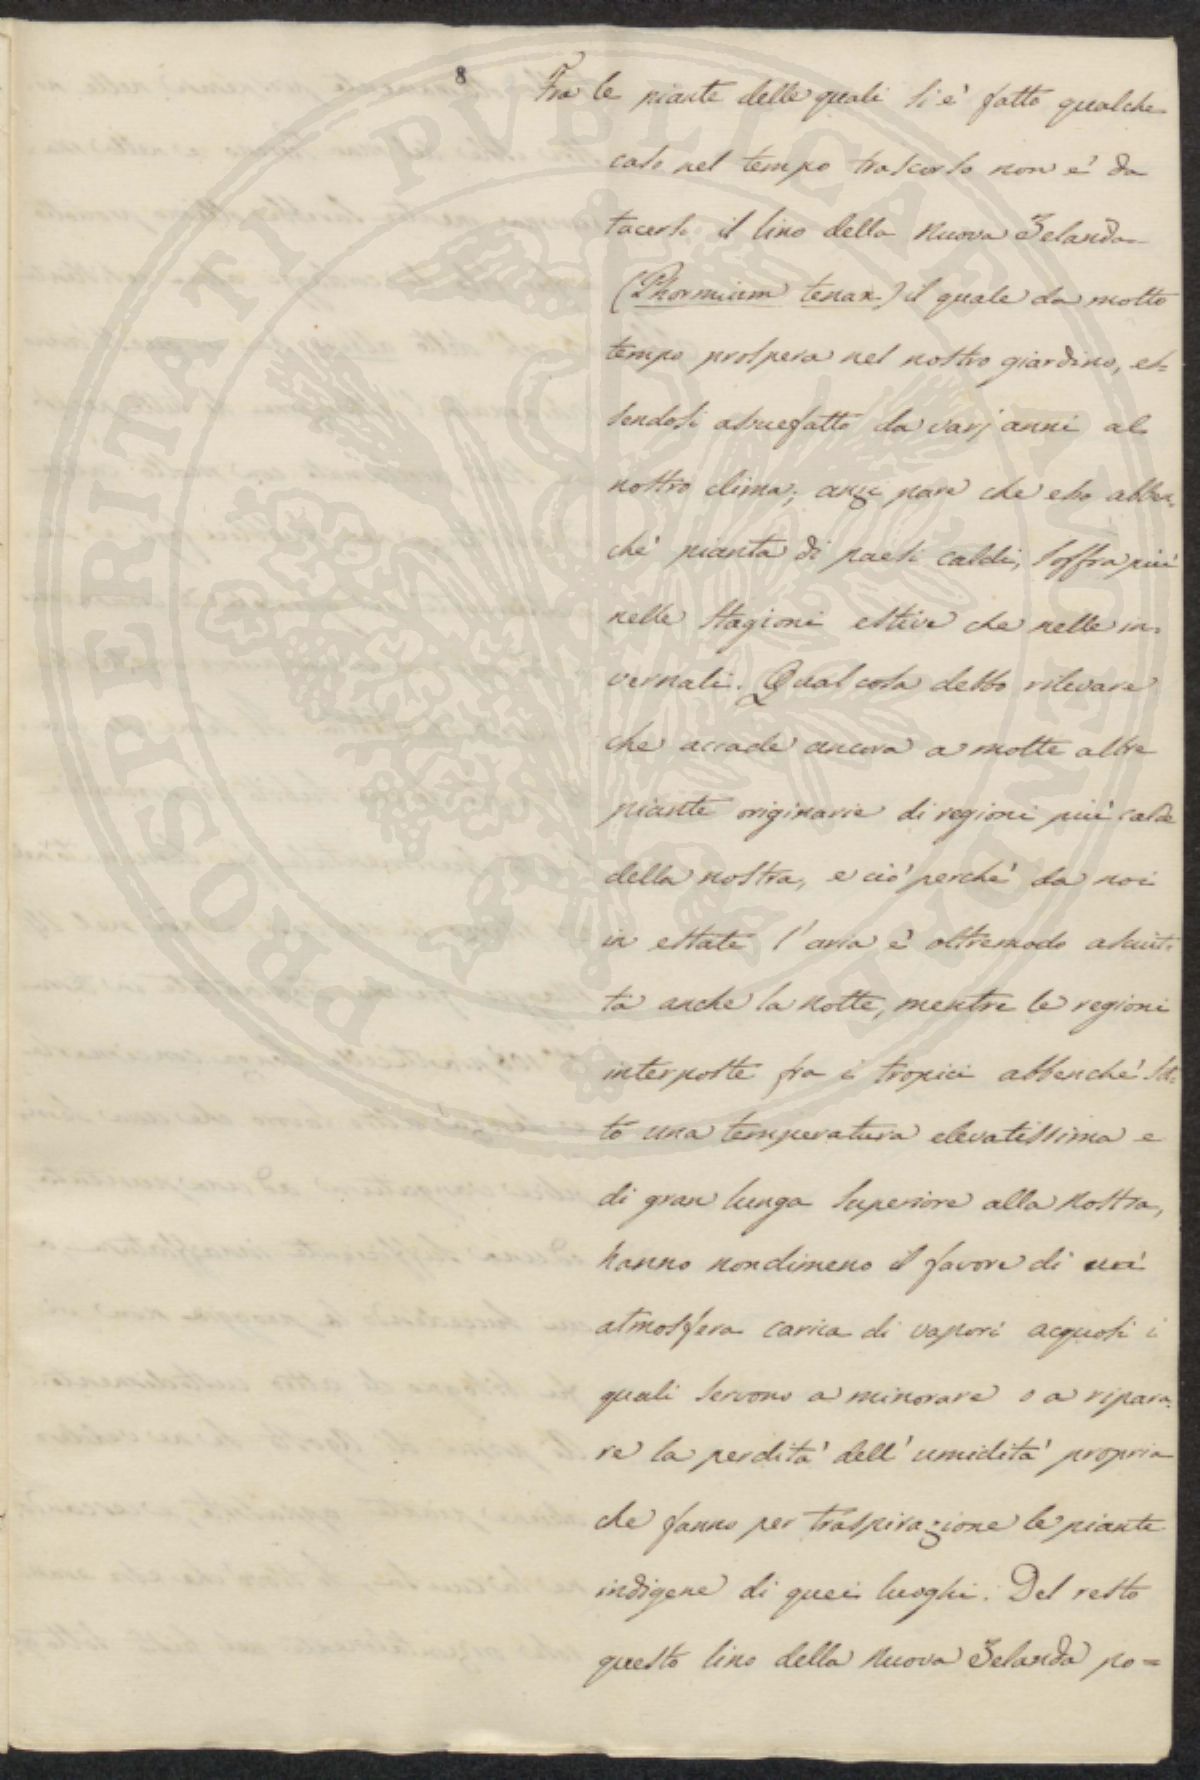 8
Fra le piante delle quali si è fatto qualche
caso nel tempo trascorso non è da
tacersi il lino della Nuova Zelanda
(Phormium tenax) il quale da molto
tempo prospera nel nostro giardino, es=
sendosi assuefatto da varj anni al
nostro clima; anzi pare che esso abben-
chè pianta di paesi caldi, soffra più
nelle stagioni estive che nelle in-
vernali. Qual cosa debbo rilevare
che accade ancora a molte altre
piante originarie di regioni più calde
della nostra, e ciò perchè da noi
in estate l'aria è oltremodo asciut-
ta anche la notte, mentre le regioni
interposte fra i tropici abbenchè sot-
to una temperatura elevatissima e
di gran lunga superiore alla nostra,
hanno nondimeno il favore di un'
atmosfera carica di vapori acquosi i
quali servono a minorare o a ripara-
re la perdita dell'umidità propria
che fanno per traspirazione le piante
indigene di quei luoghi. Del resto
questo lino della Nuova Zelanda po=
PROSPERITATI PVBLICAE AVGENDAE